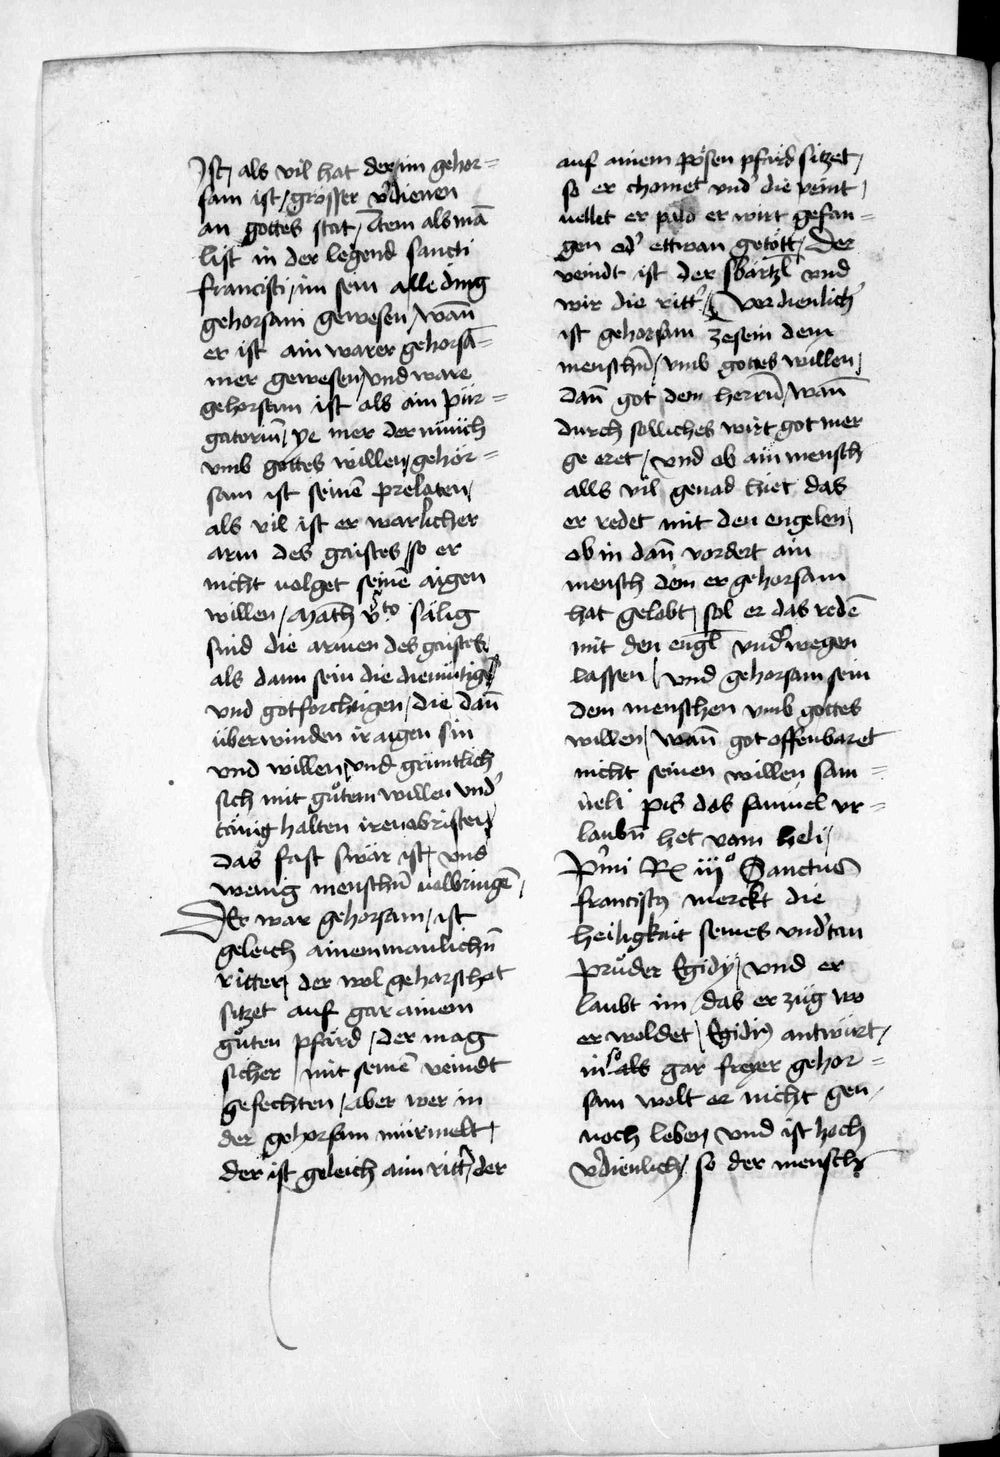 Ist / als vil hat der im gehor=
sam ist / grösser v̾dienen
an gottes stat / Item als mā
list in der legend sancti
francisci / im sein alle ding
gehorsam gewesen / wañ
er ist ain warer gehorsā=
mer gewesen / und ware
gehorsam ist als ain pür=
gatoriū / ye mer der münich
vmb gottes willen / gehor=
sam ist seinē prelaten /
als vil ist er warlicher
arm des gaistes / so er
nicht uolget seinē aigen
willen / Math v̊to sälig
sind die armen des gaistes /
als dann sein die diemütigē
und gotforchtigen / die dañ
überwinden ir aigen sin
und willen / und grüntlich
sich mit gůtem willen vnd̾
tänig halten iren obristen /
das fast swär ist / und
wenig menschn̄ uolbringē /
Der war gehorsam / ist
geleich ainem manlichn̄
ritter / der wol geharschet
sitzet auf gar ainem
gůten pfärd / der mag
sicher / mit seinē veindt
gefechten / aber wer in
der gehorsam mürmelt /
der ist geleich aim ritt̾ / der
auf ainem pösen pfärd sitzet /
so er chomet vnd̾ die veint /
uellet er pald er wirt gefan=
gen od̾ ettwan getött / Der
veindt ist der swärtzl und
wir die ritt̾ / Vor dienlich̾
ist gehorsam zesein dem
menschn̄ / vmb gottes willen /
dañ got dem herrn̄ / wañ
durch solliches wirt got mer
ge eret / und ob ain mensch
alls vil genad hiet das
er redet mit den engelen /
ob in dañ vordert ain
mensch dem er gehorsam
hat gelobt / sol er das redē
mit den engl̄ vnd̾wegen
lassen / und gehorsam sein
dem menschen vmb gottes
willen / wañ got offenbaret
nicht seinen willen sam=
ueli pis das samuel vr=
laubn̄ het vom heli /
P̾mi R iijo Sanctus
franciscꝰ merckt die
heiligkait seines vnd̾tan
průder Egidy / und er
laubt im / das er züg wo
er woldet / Egidiꝰ antwürt /
in so als gar freyer gehor=
sam wolt er nicht gen /
noch leben / und ist hoch
v̾dienlich / so der mensch